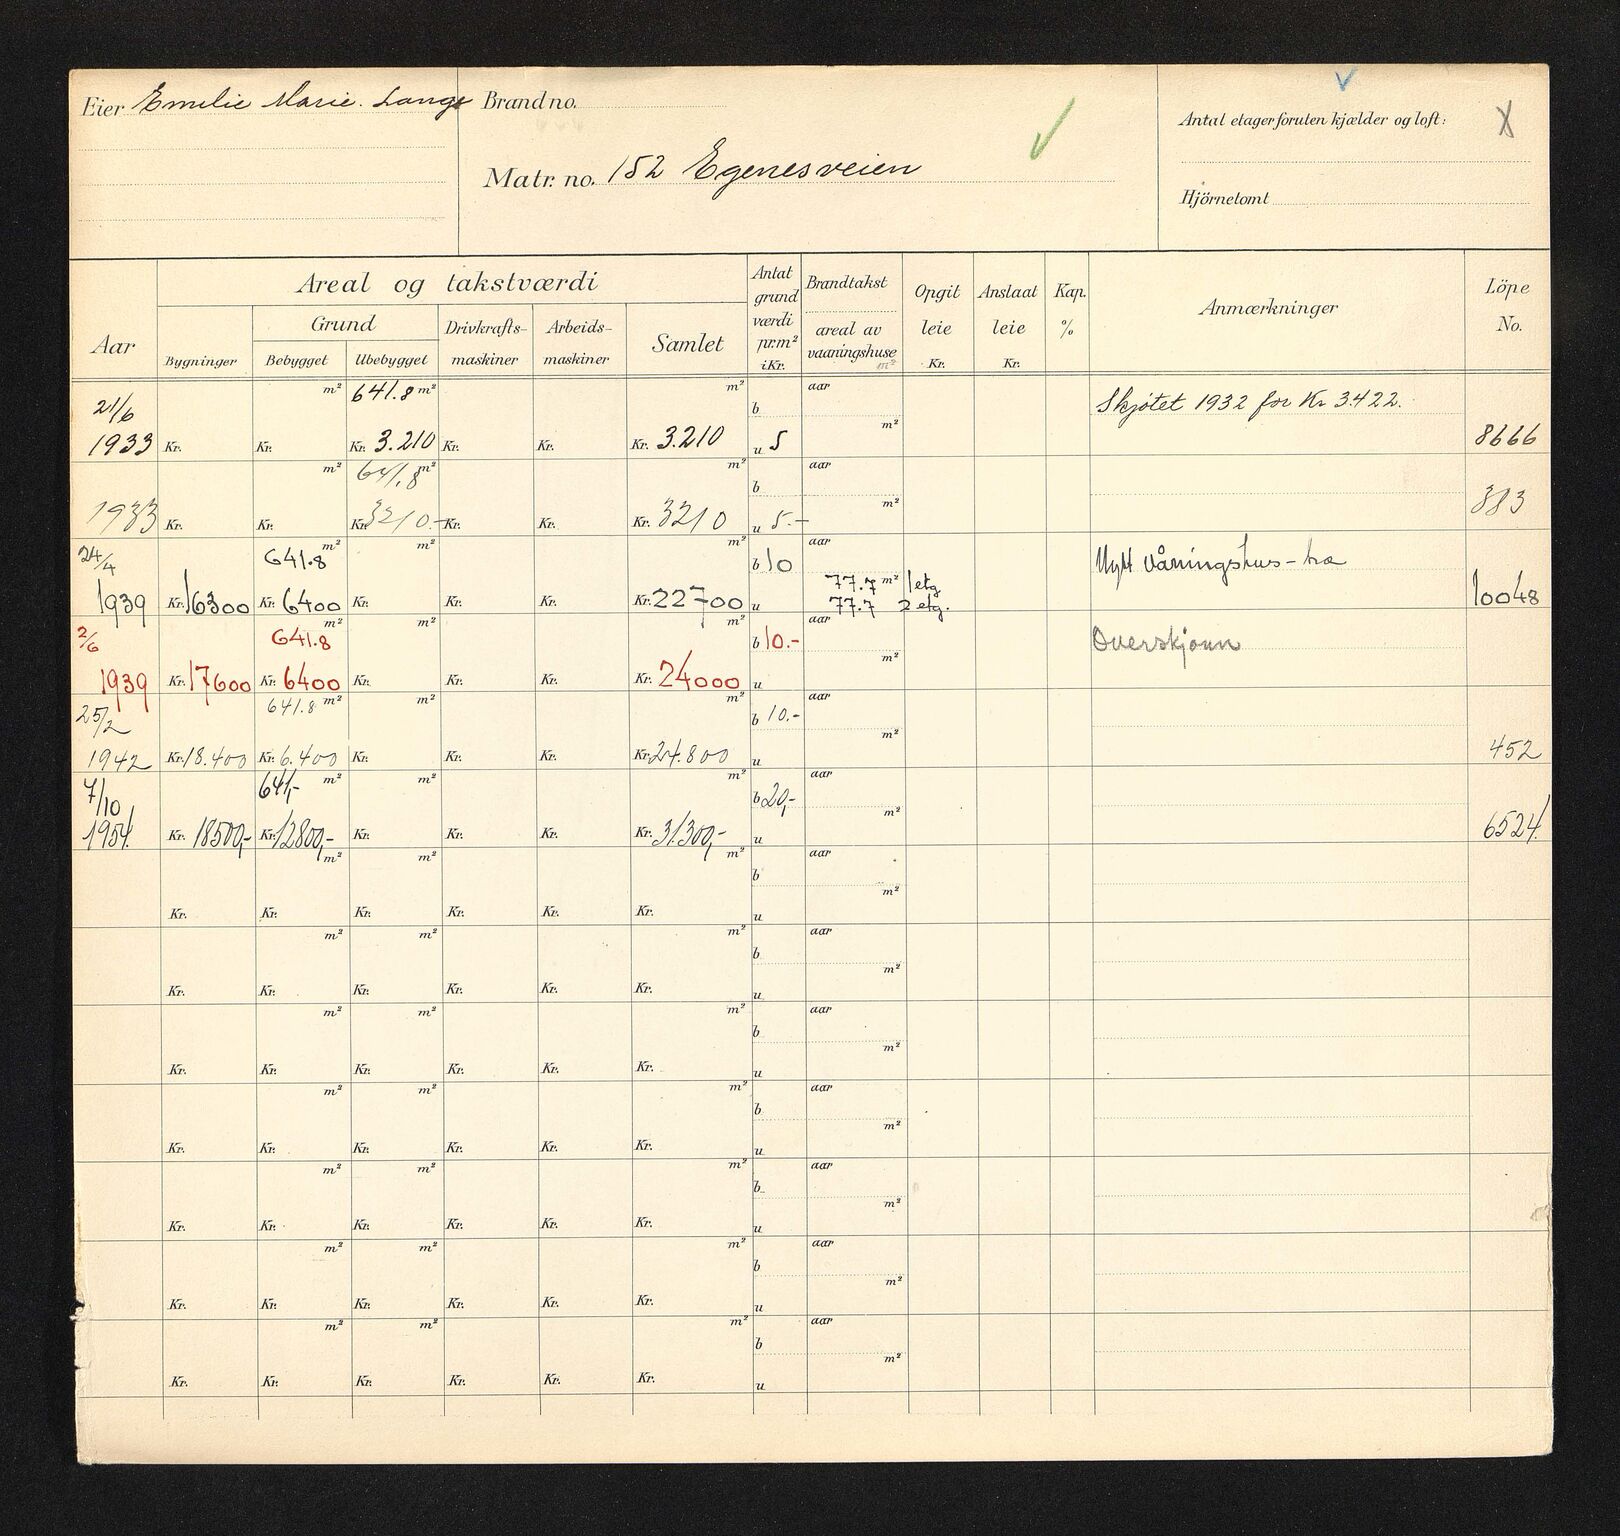 Eier Emilie Marie. Lange
Brand no.
Matr. no. 152 Egenesveien
Antal etager foruten kjælder og loft: X
Hjörnetomt
Aar
Areal og takstværdi
Bygninger
Grund
Bebygget
Ubebygget
Drivkrafts-
maskiner
Arbeids-
maskiner
Samlet
Antat
grund
værdi
pr. m²
i Kr.
Brandtakst
areal av
vaaningshuse
m²
Opgit
leie
Kr.
Anslaat
leie
Kr.
Kap.
%
Anmærkninger
Löpe
No.
m² 641.8 m² m² aar
21/6 b Skjøtet 1932 for Kr 3.422.
m²
1933 Kr. Kr. Kr. 3.210 Kr. Kr. Kr. 3.210 u 5 8666
m² 641.8 m² m² aar
b
m²
1933 Kr. Kr. Kr. 3210.- Kr. Kr. Kr. 3210 u 5.- 383
m² m² m² aar
24/4 641.8 b 10 Nytt våningshus - tre
77.7 m² 1 etg
1939 Kr. 16300 Kr. 6400 Kr. Kr. Kr. Kr. 22700 u 77.7 2 etg. 10048
m² m² m² aar
2/6 641.8 b 10.- Overskjønn
m²
1939 Kr. 17600 Kr. 6400 Kr. Kr. Kr. Kr. 24000 u
641.8 m² m² m² aar
25/2 b 10.-
m²
1942 Kr. 18.400 Kr. 6.400 Kr. Kr. Kr. Kr. 24.800 u 452
641,- m² m² m² aar
7/10 b 20,-
m²
1954. Kr. 18500,- Kr. 12800,- Kr. Kr. Kr. Kr. 31.300,- u 6524.
m² m² m² aar
b
m²
Kr. Kr. Kr. Kr. Kr. Kr. u
m² m² m² aar
b
m²
Kr. Kr. Kr. Kr. Kr. Kr. u
m² m² m² aar
b
m²
Kr. Kr. Kr. Kr. Kr. Kr. u
m² m² m² aar
b
m²
Kr. Kr. Kr. Kr. Kr. Kr. u
m² m² m² aar
b
m²
Kr. Kr. Kr. Kr. Kr. Kr. u
m² m² m² aar
b
m²
Kr. Kr. Kr. Kr. Kr. Kr. u
m² m² m² aar
b
m²
Kr. Kr. Kr. Kr. Kr. Kr. u